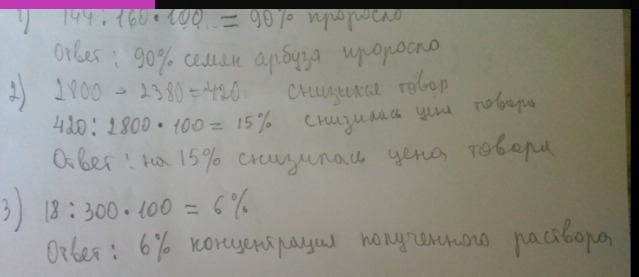 1) 144 : 160 · 100 = 90% проросло
Ответ : 90% семян арбуза проросло
2) 2800 - 2380 = 420 снизился товар
420 : 2800 · 100 = 15% снизилась цена товара
Ответ : на 15% снизилась цена товара
3) 18 : 300 · 100 = 6%
Ответ : 6% концентрация полученного раствора